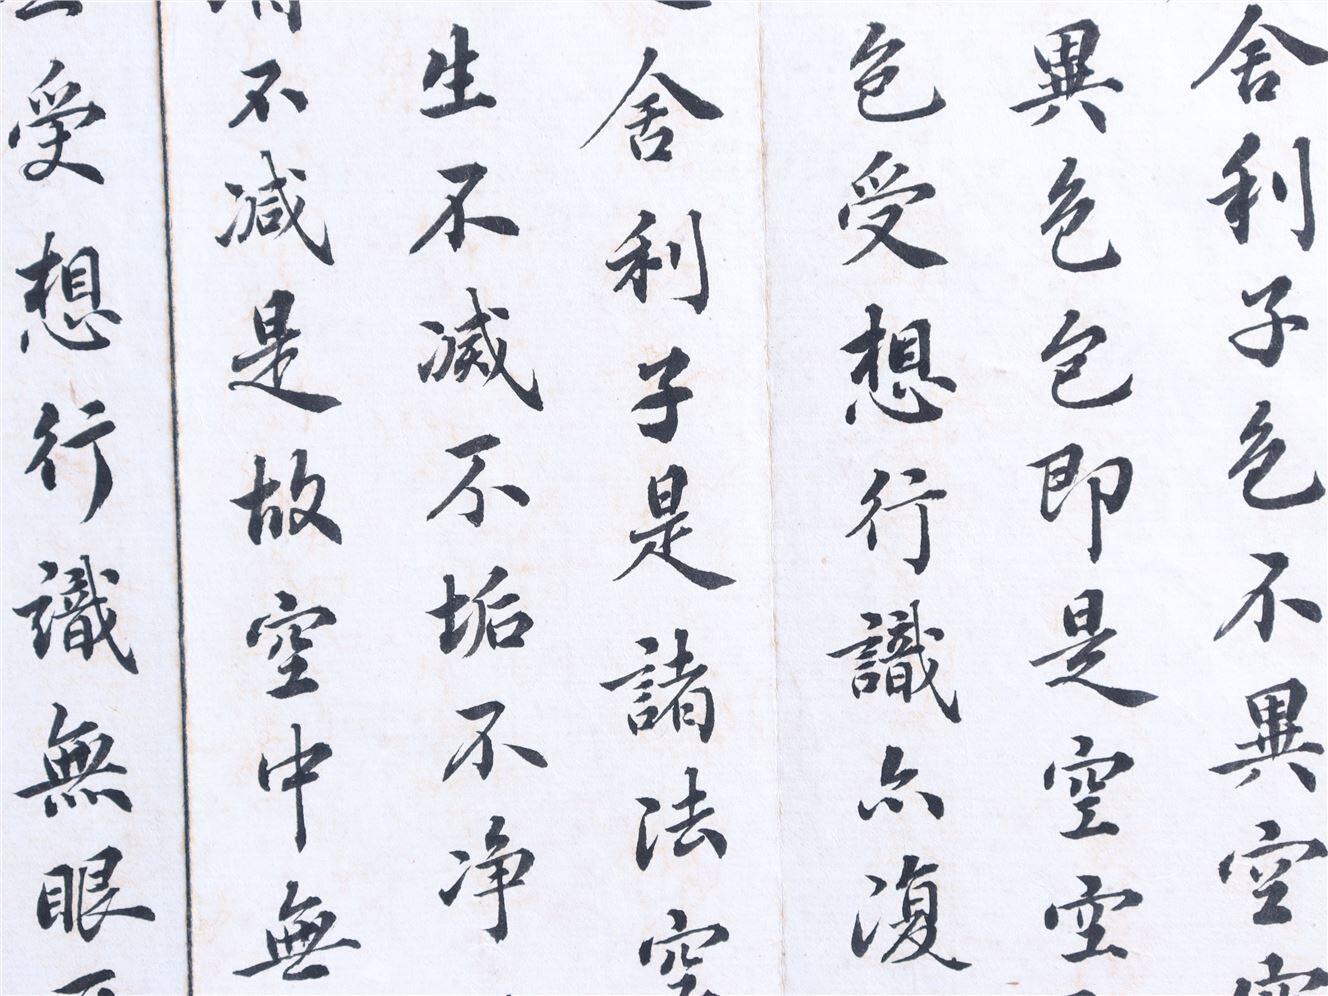 舍利子色不異空空
異色色即是空空
色受想行識亦復
舍利子是諸法空
生不滅不垢不净
不減是故空中無
受想行識無眼